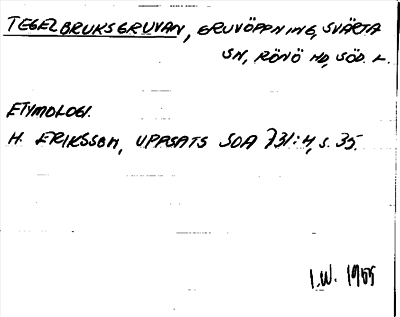 TEGELBRUKSGRUVAN, GRUVÖPPNING, SVÄRTA
SN, RÖNÖ HD, SÖD. L.
ETYMOLOGI.
H. ERIKSSON, UPPSATS SOA 731:4, S. 35.
I.W. 1955